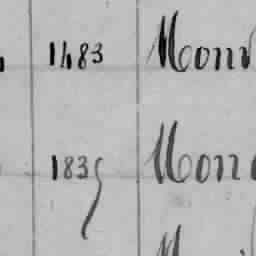 1483 Monv
1835 Mon